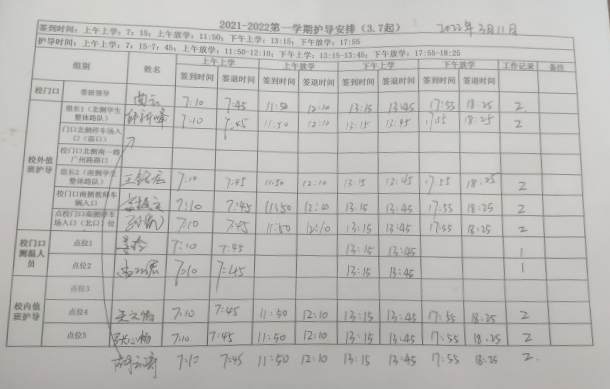 2021-2022第一学期护导安排（3.7起） 2022年3月11日
签到时间：上午上学：7：10；上午放学：11:50；下午上学：13:15；下午放学：17:55
护导时间：上午上学：7：15-7：45；上午放学：11:50-12:10；下午上学：13:15-13:45；下午放学：17:55-18:25
组别 姓名 上午上学 上午放学 下午上学 下午放学 工作记录 备注
签到时间 签退时间 签到时间 签退时间 签到时间 签退时间 签到时间 签退时间
校门口 带班领导 7:10 7:45 11:50 12:10 13:15 13:45 17:55 18:25 2
校外值班护导 组长1（北侧学生整体路队） 7:10 7:45 11:50 12:10 13:15 13:45 17:55 18:25 2
门口北侧停车场入口（南口）
校门口北侧南一路广州路路口
组长2（南侧学生整体路队） 7:10 7:45 11:50 12:10 13:15 13:45 17:55 18:25
校门口南侧教师车辆入口 7:10 7:45 11:50 12:10 13:15 13:45 17:55 18:25 2
点校门口南侧停车场入口（北口）位 7:10 7:45 11:50 12:10 13:15 13:45 17:55 18:25 2
校门口测温人员 点位1 7:10 7:45 13:15 13:45 1
点位2 7:10 7:45 13:15 13:45 1
校内值班护导 点位3
点位4 7:10 7:45 11:50 12:10 13:15 13:45 17:55 18:25 2
点位5 7:10 7:45 11:50 12:10 13:15 13:45 17:55 18:25 2
7:10 7:45 11:50 12:10 13:15 13:45 17:55 18:25 2